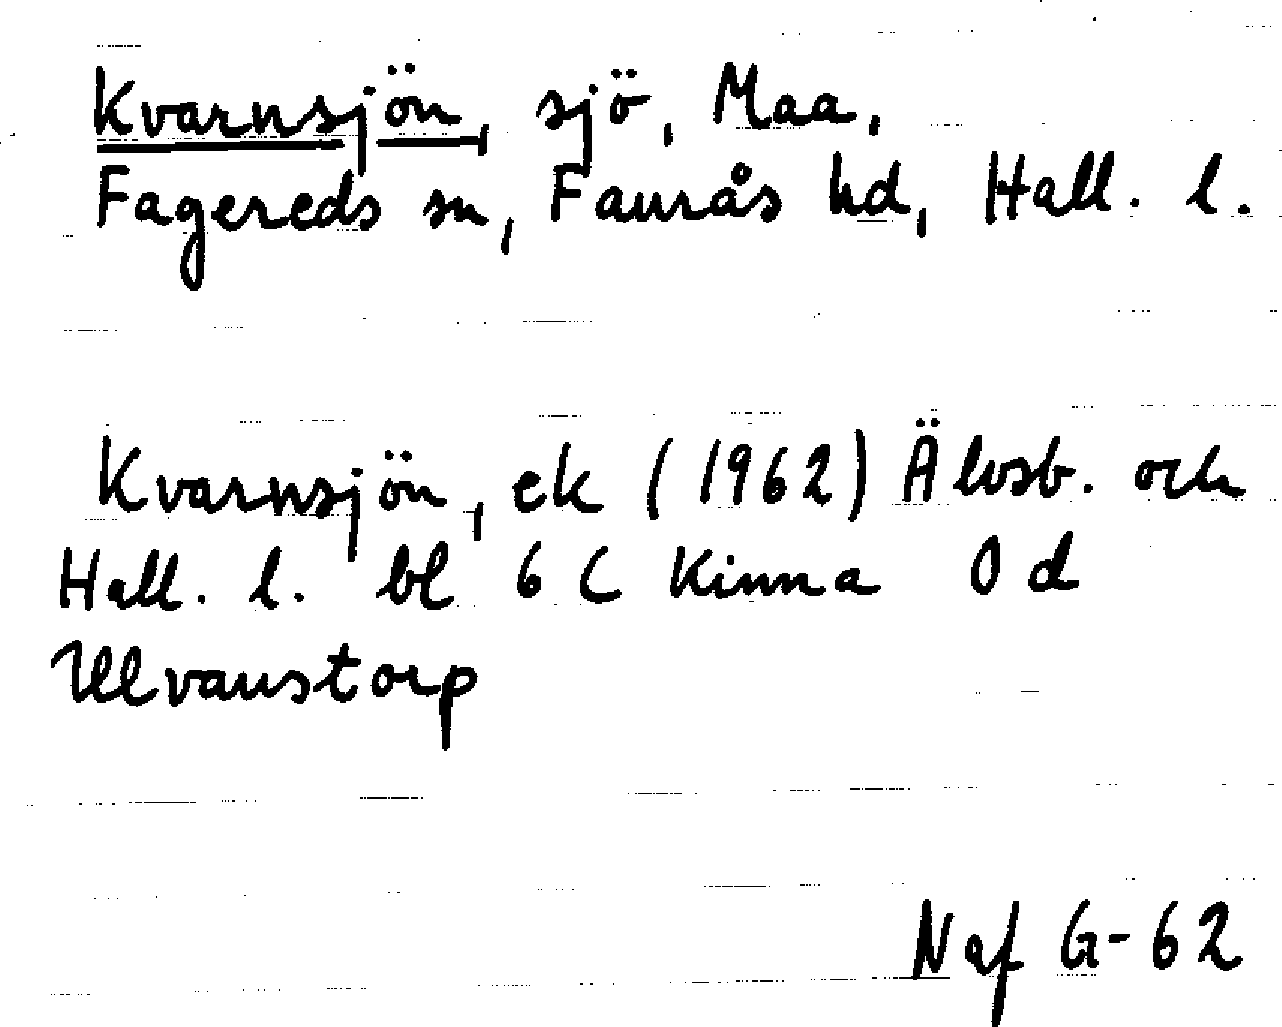 Kvarnsjön, sjö, Maa,
Fagereds sn, Faurås hd, Hall. l.
Kvarnsjön, ek (1962) Älvsb. och
Hall. l. bl 6 C Kinna 0 d
Ulvanstorp
Naf G-62